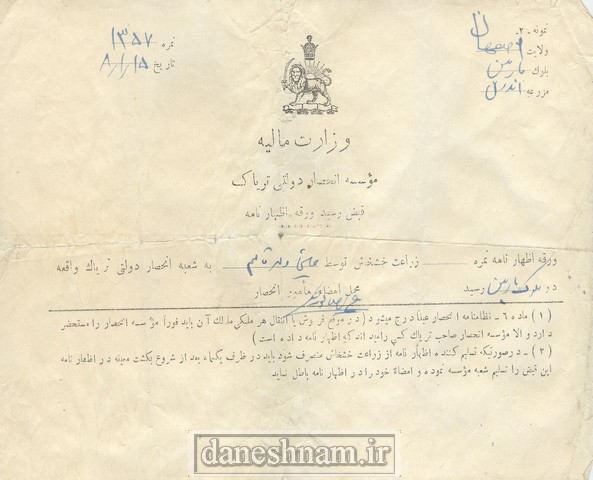 نمونه ـ ۲ـ
ولایت اصفهان
بلوک ماربین
مزرعه
نمره ۱۳۵۷
تاریخ
وزارت مالیه
مؤسسه انحصار دولتی تریاک
قبض رسید ورقه اظهار نامه
ورقه اظهار نامه نمره زراعت خشخاش توسط ولد قاسم به شعبه انحصار دولتی تریاك واقعه
در بلوک ماربین رسید محل امضای مأمور انحصار
(۱) ماده ٦ ـ نظامنامه انحصار عیناً درج میشود (در موقع فروش یا انتقال هر ملکی مالك آن باید فوراً مؤسسه انحصار را مستحضر
دارد و الا مؤسسه انحصار صاحب تریاك کسی را میداند که اظهار نامه داده است)
(۲) ـ درصورتیکه تسلیم کننده اظهار نامه از زراعت خشخاش منصرف شود باید در ظرف یکماه بعد از شروع بکشت معینه در اظهار نامه
این قبض را تسلیم شعبه مؤسسه نموده و امضاء خود را در اظهار نامه باطل نماید
daneshnam.ir